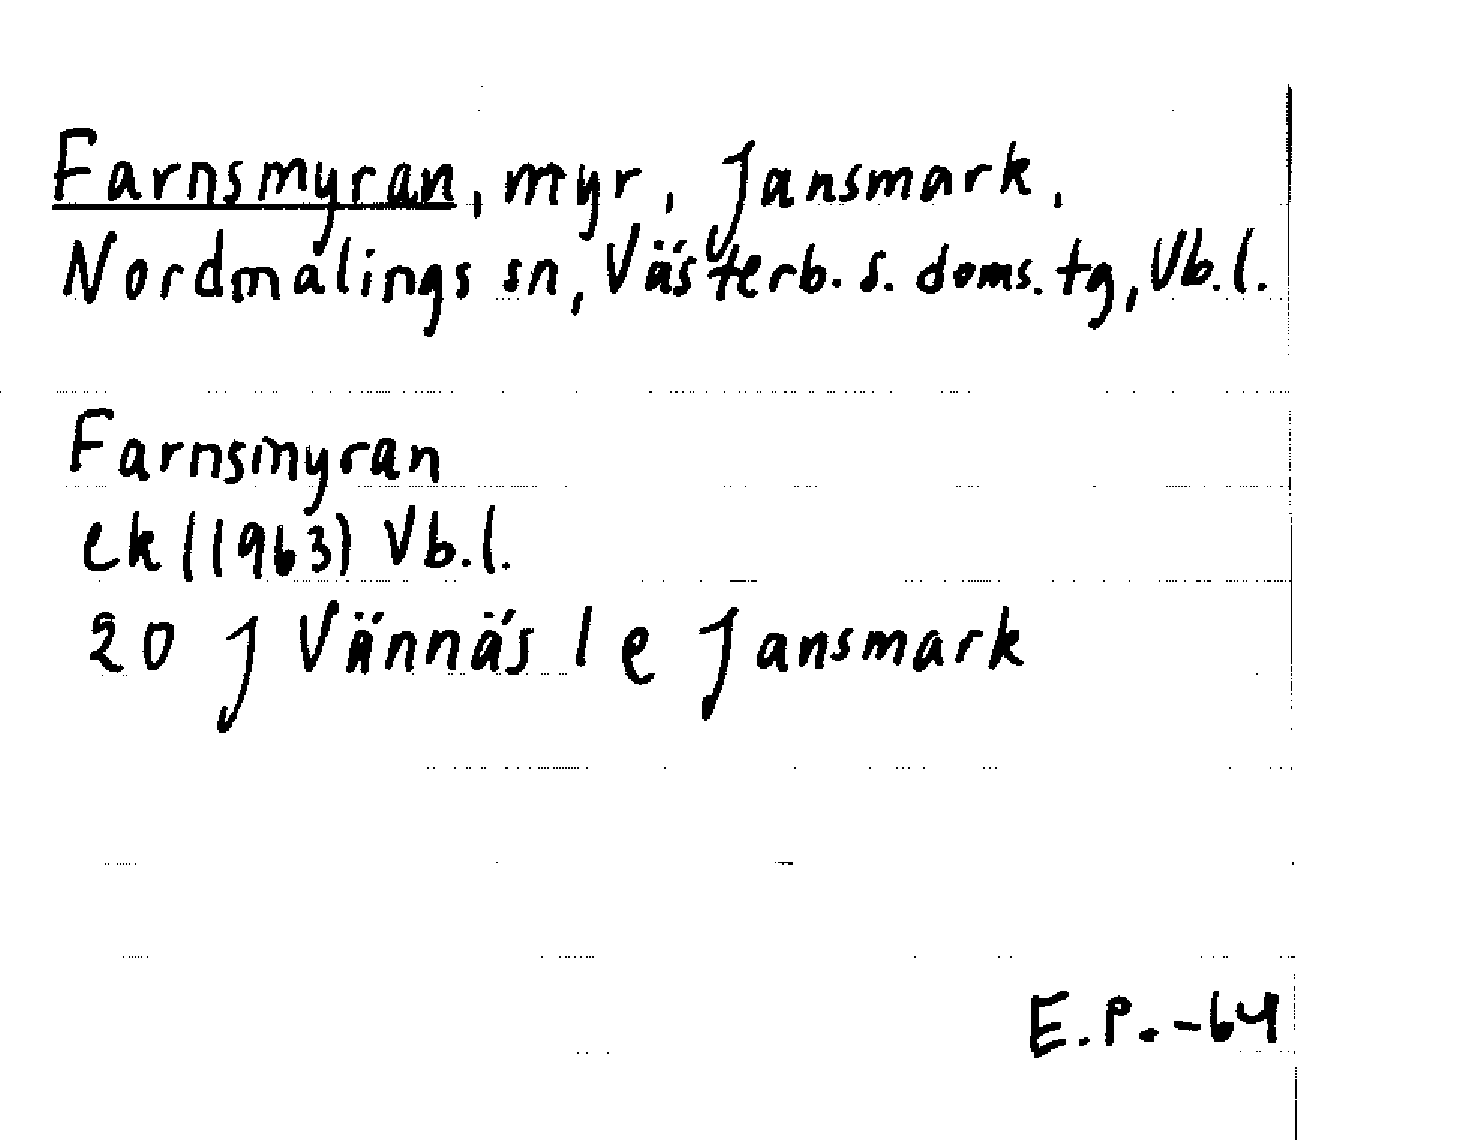 Farnsmyran, myr, Jansmark,
Nordmalings sn, Västerb. s. doms. tg, Vb.l.
Farnsmyran
ek (1963) Vb.l.
20 J Vännäs l e Jansmark
E.P. -64